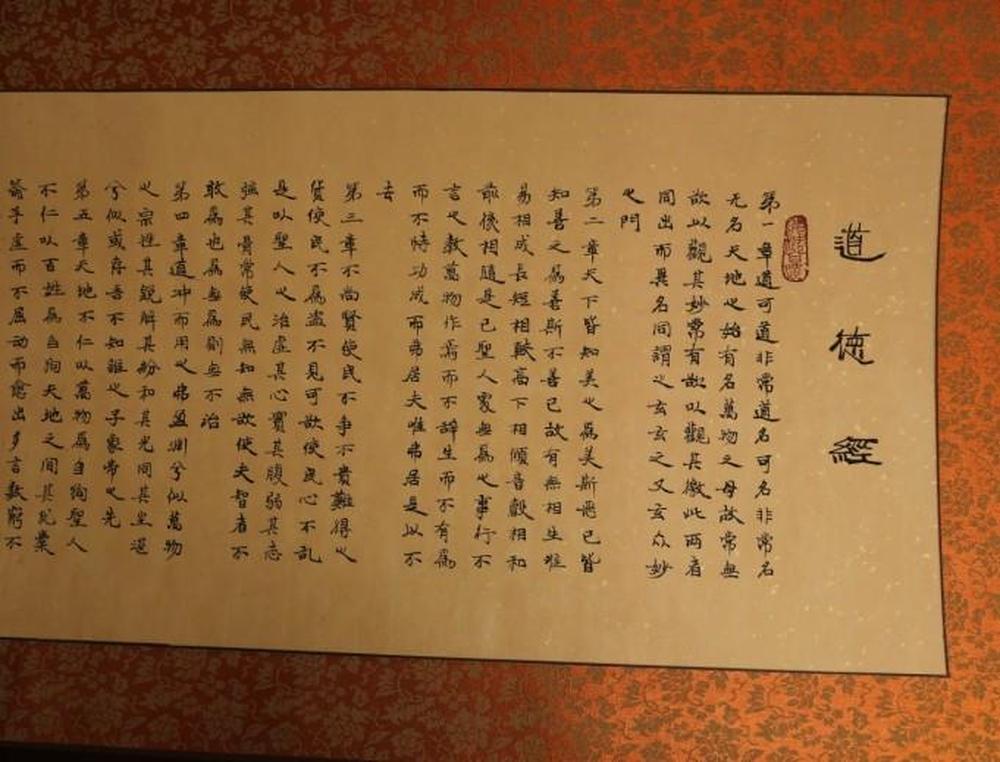 道德經
第一章道可道非常道名可名非常名
无名天地之始有名萬物之母故常無
欲以觀其妙常有欲以觀其徼此两者
同出而異名同謂之玄玄之又玄众妙
之門
第二章天下皆知美之爲美斯惡已皆
知善之爲善斯不善已故有無相生难
易相成長短相形高下相倾音聲相和
前後相隨是已聖人處無爲之事行不
言之教萬物作焉而不辞生而不有爲
而不恃功成而弗居夫唯弗居是以不
去
第三章不尚賢使民不争不貴難得之
货使民不爲盗不見可欲使民心不乱
是以聖人之治虚其心實其腹弱其志
强其骨常使民無知無欲使夫智者不
敢爲也爲無爲則無不治
第四章道冲而用之弗盈渊兮似萬物
之宗挫其銳解其紛和其光同其尘湛
兮似或存吾不知誰之子象帝之先
第五章天地不仁以萬物爲刍狗聖人
不仁以百姓爲刍狗天地之间其犹橐
籥乎虚而不屈动而愈出多言数窮不